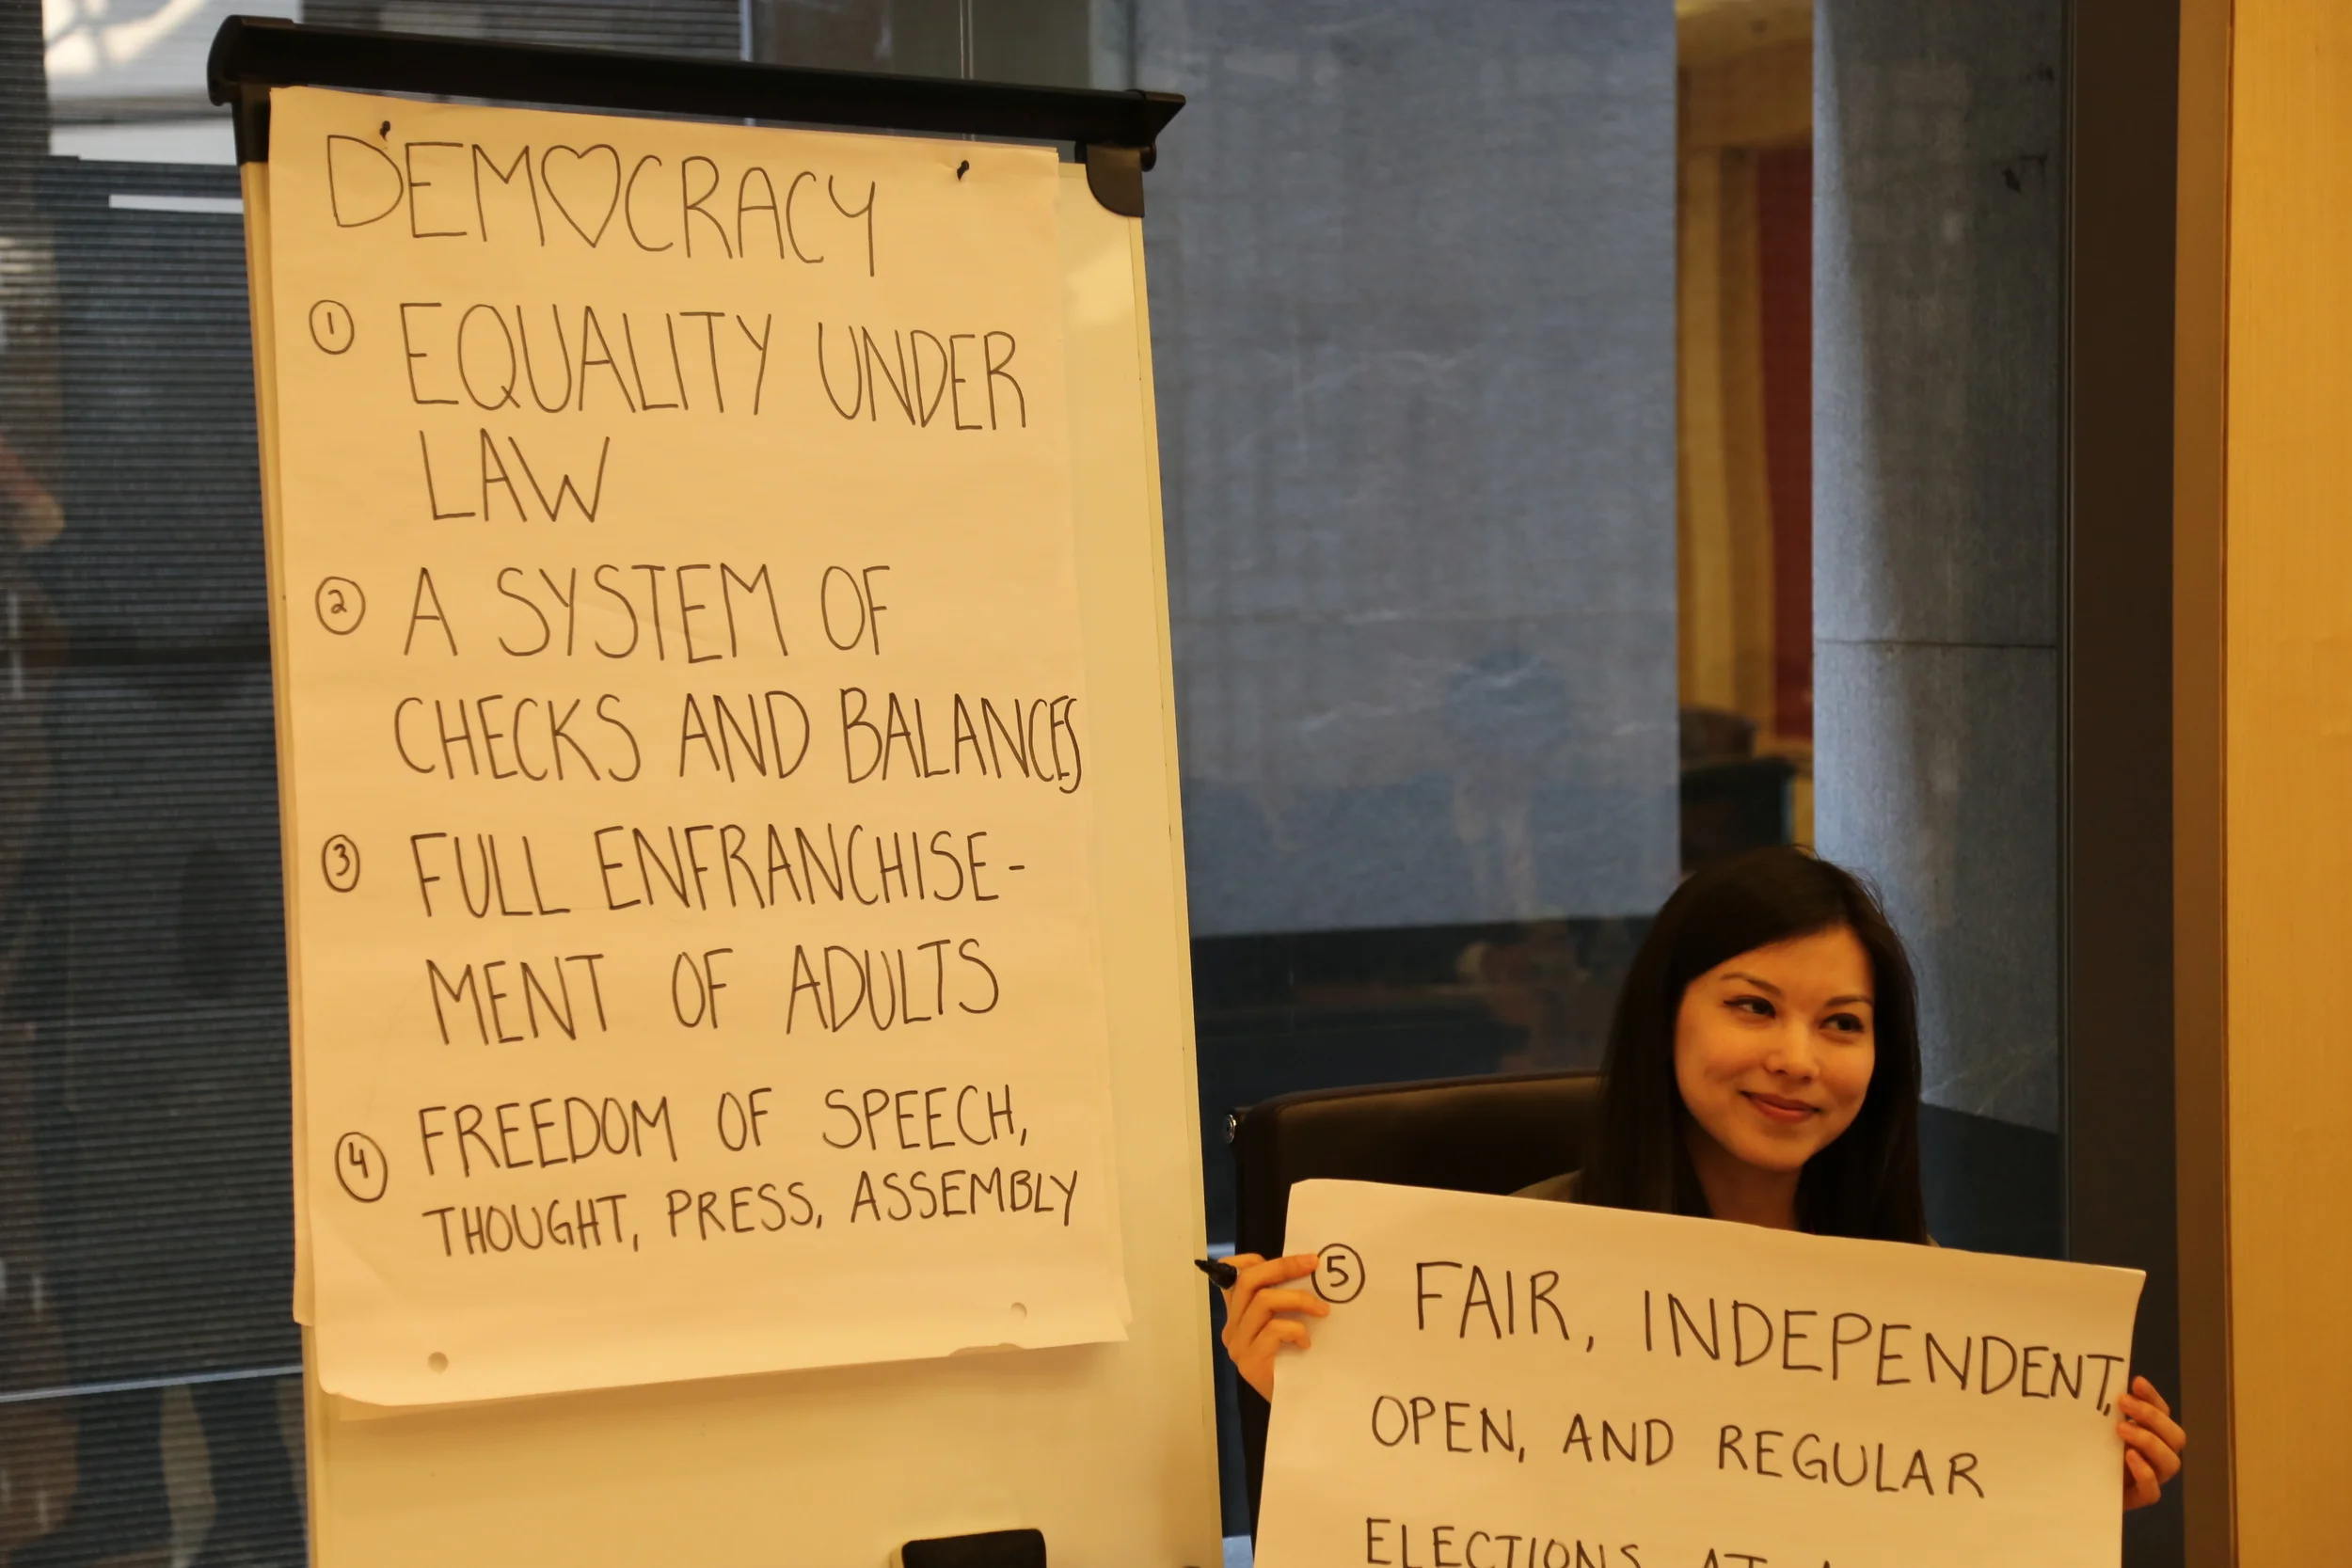 DEM♡CRACY
① EQUALITY UNDER
LAW
② A SYSTEM OF
CHECKS AND BALANCES
③ FULL ENFRANCHISE-
MENT OF ADULTS
④ FREEDOM OF SPEECH,
THOUGHT, PRESS, ASSEMBLY
⑤ FAIR, INDEPENDENT,
OPEN, AND REGULAR
ELECTIONS AT